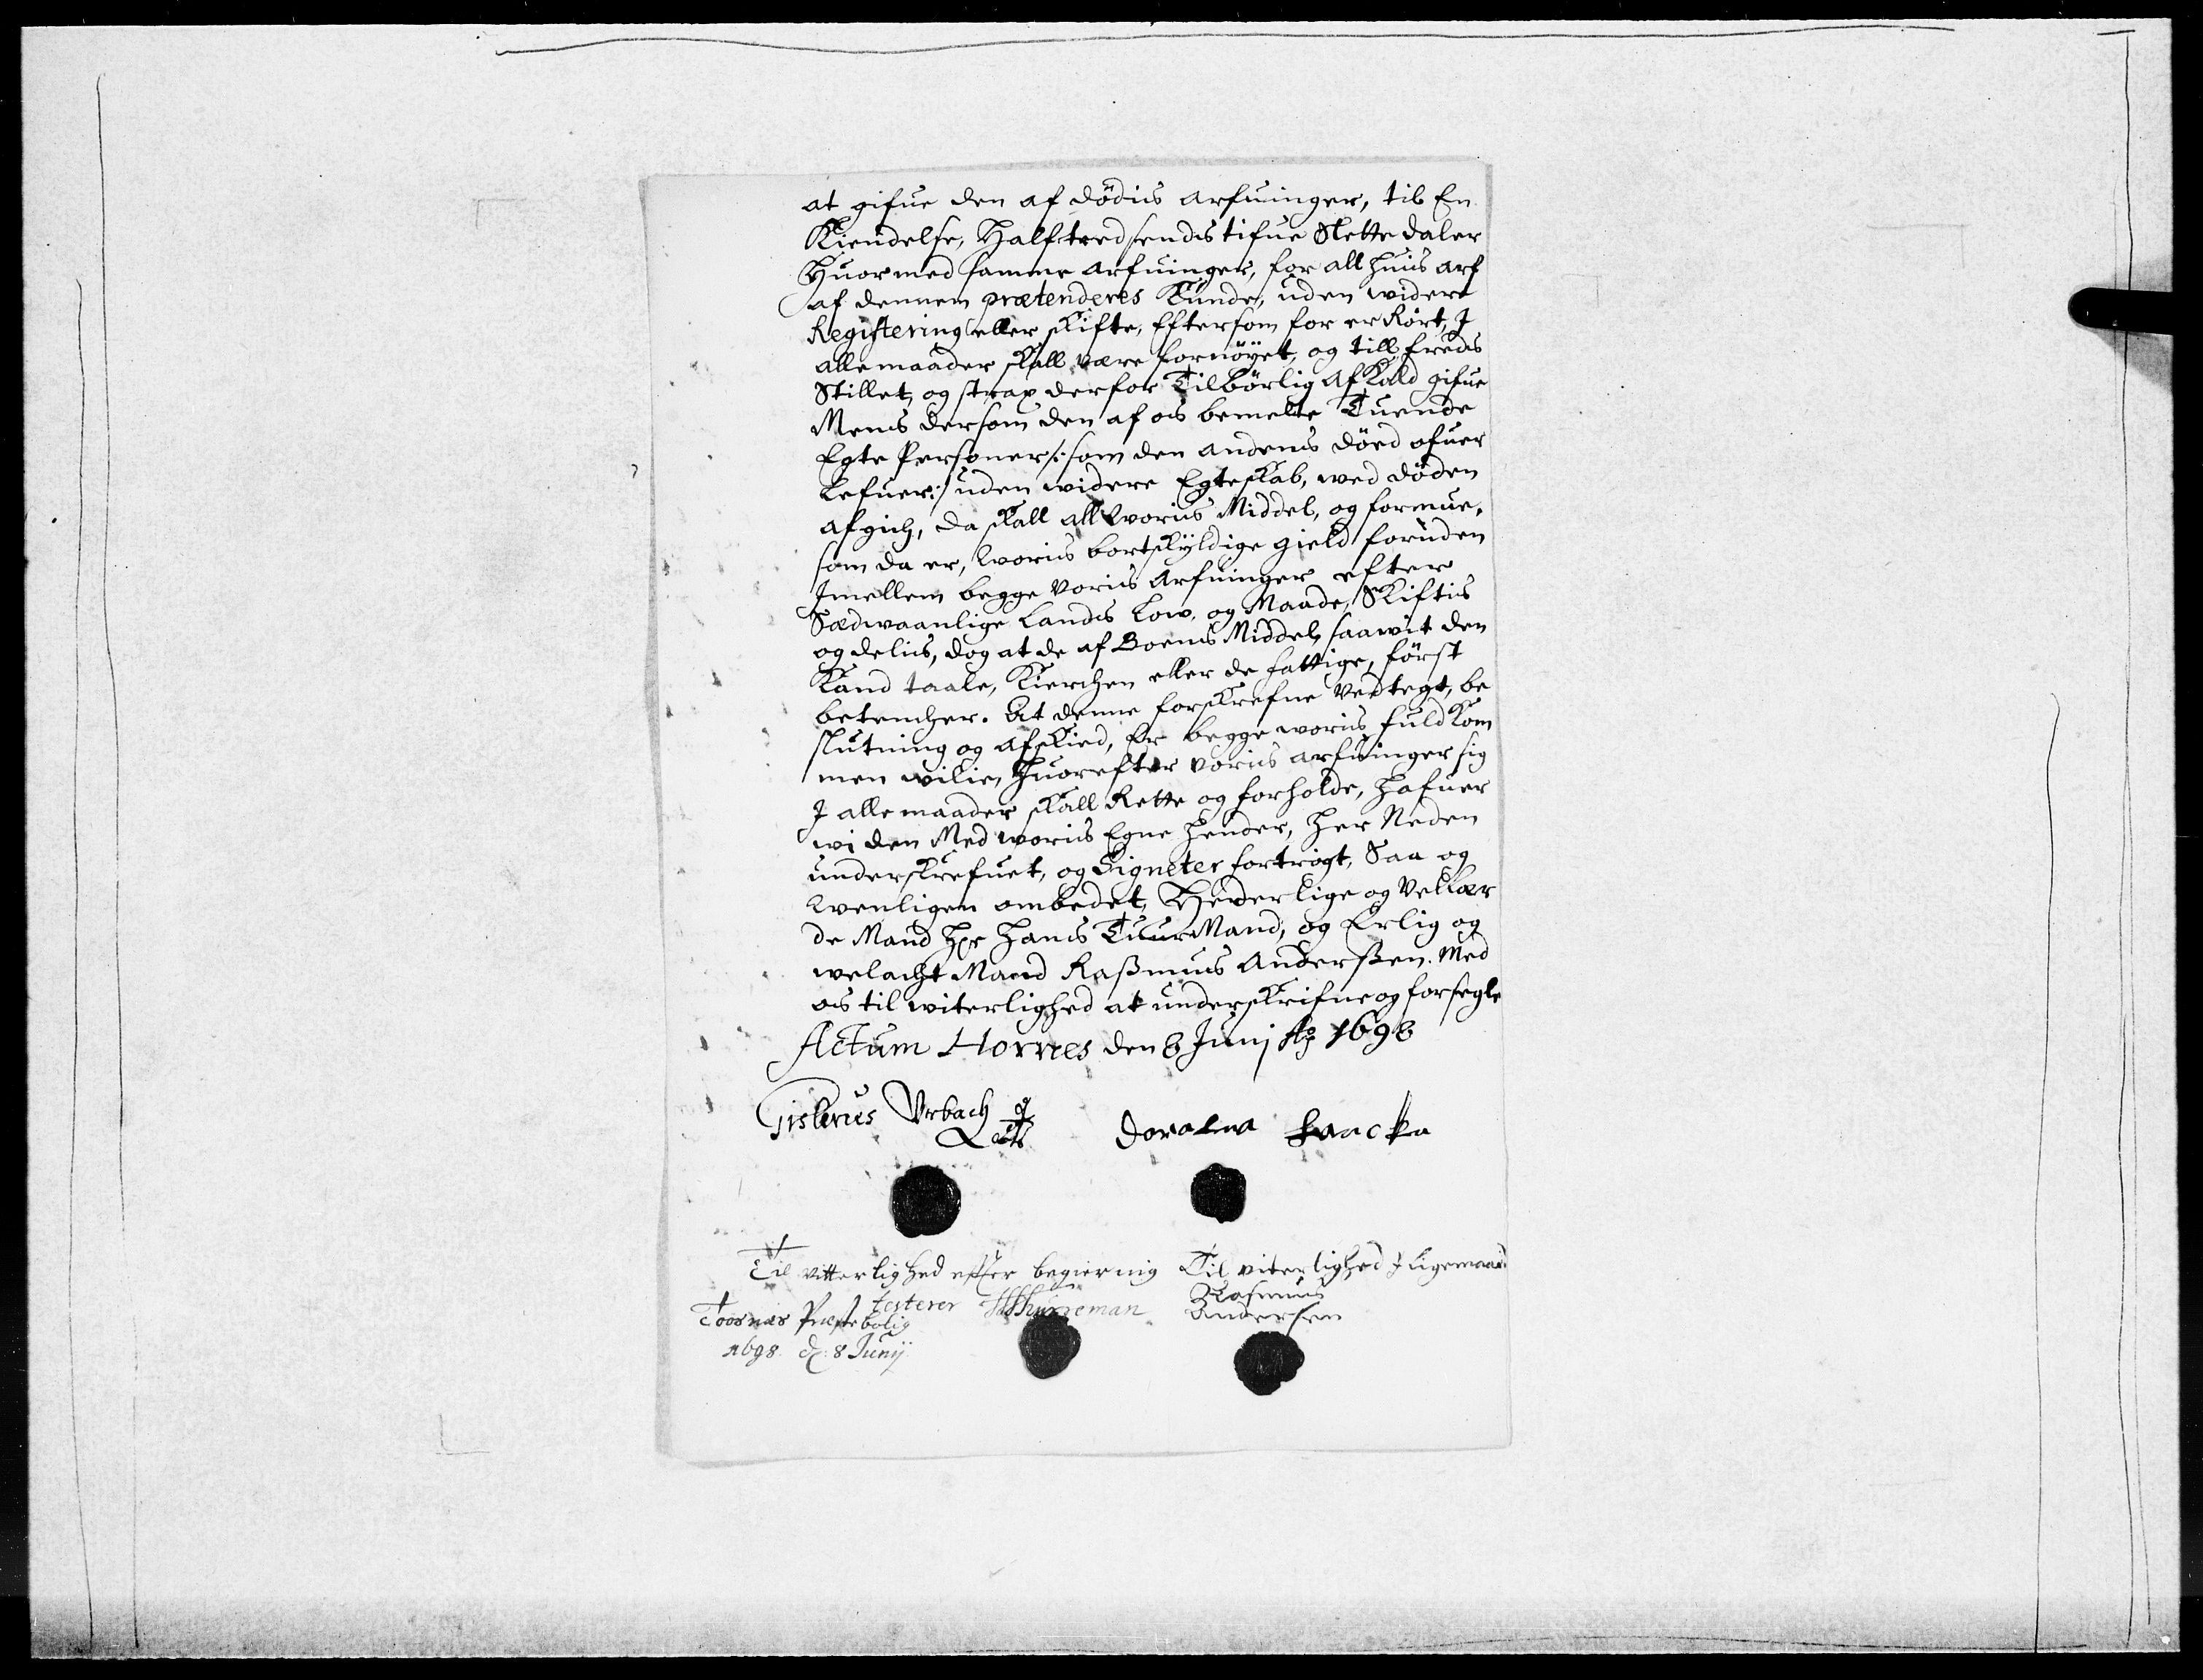 at gifue den af dödis arfuinger, til En
Kiendelse, Halftredsendstifue Slette daler
Huormed samme arfuinger, for all huis arf
af dennem prætenderes Kunde, uden widere
Registering eller skifte, Eftersom for er Rört, J
alle maader skall være fornöyet, og till freds
Stillet, og strax derfor Tilbörlig af Kald gifue
Mens dersom den af os bemelte Tuende
Egte Personer /: som den andens död ofuer
Lefuer :/ uden widere Egteskab, wed döden
afgich, da skall all woris Middel, og formue,
som da er, woris bortskyldige gield foruden
Jmellem begge voris arfuinger efter
Sædwaanlige Lands Low, og Maade, Skiftis
og delis, dog at de af Boens Middel, saawit den
Kand taale, Kierchen eller de fattige, först
betencher. At denne forskrefne Vedtegt, be
slutning og afskied, Er begge woris fuldKom
men wilie, Huorefter voris arfuinger sig
J alle maader skall Rette og forholde, hafuer
wi den Med woris Egne hender, her Neden
underskrefuet, og Signeter fortrögt, Saa og
wenligen ombedet, Hederlige og Vellær
de Mand Hr Hans TuurMand, og Erlig og
welacht Mand Raßmus Anderßen. Med
os til witerlighed at underskrifue og forsegle
Actum Hornes den 8 Junj Ao 1698
Gislerus Vrbach
Dorotea Haacka
Til vitterlighed efter begiering Til viterlighed J ligemaade
testerer HThureman Rasmus
Toornæs Præstebolig Andersen
1698. d: 8 Junij